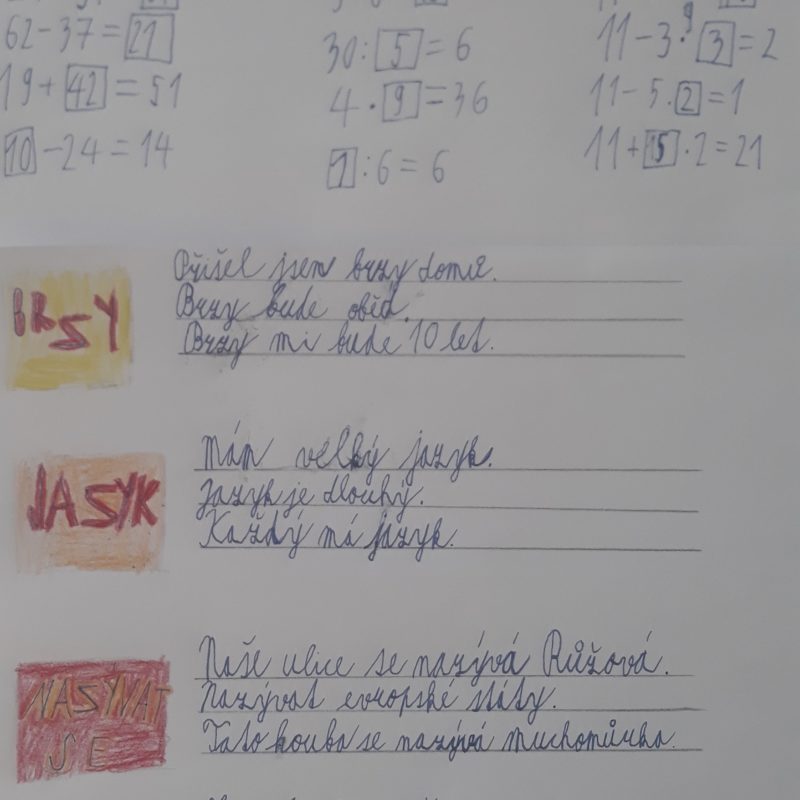 62-37=21
30:5=6
11-3·3=2
19+42=51
4·9=36
11-5·2=1
10-24=14
1:6=6
11+15·2=21
BRSY
Přišel jsem brzy domů.
Brzy bude oběd.
Brzy mi bude 10 let.
JASYK
Mám velký jazyk.
Jazyk je dlouhý.
Každý má jazyk.
NASÝVAT
SE
Naše ulice se nazývá Růžová.
Nazývat evropské státy.
Tato houba se nazývá muchomůrka.